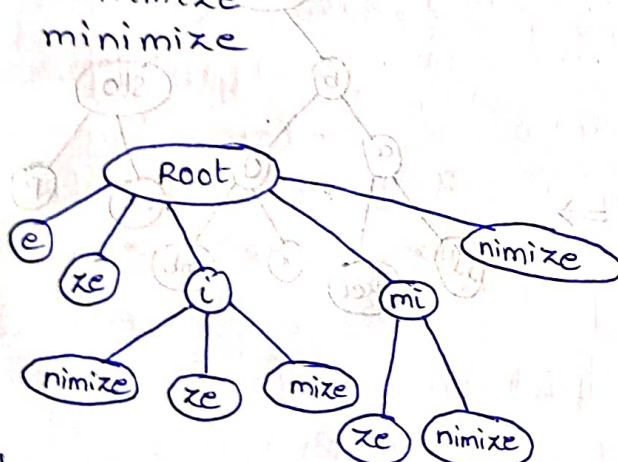 minimize
Root
e
ze
i
mi
nimize
nimize
ze
mize
ze
nimize